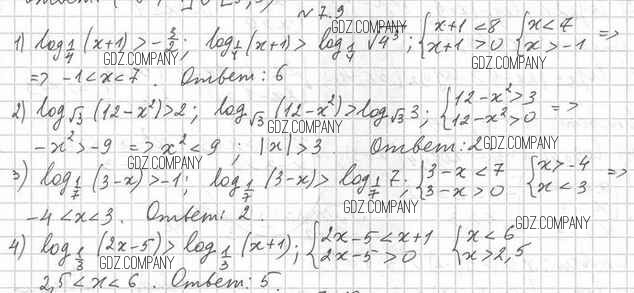 №7.9
1) log_{1/4} (x+1) > -3/2 ; log_{1/4} (x+1) > log_{1/4} √4³ ; { x+1 < 8 x+1 > 0 { x < 7 x > -1 =>
=> -1 < x < 7. Ответ: 6
2) log_{√3} (12-x²) > 2 ; log_{√3} (12-x²) > log_{√3} 3 ; { 12-x² > 3 12-x² > 0 =>
-x² > -9 => x² < 9 ; |x| > 3 Ответ: 2
3) log_{1/7} (3-x) > -1 ; log_{1/7} (3-x) > log_{1/7} 7 ; { 3-x < 7 3-x > 0 { x > -4 x < 3 =>
-4 < x < 3. Ответ: 2.
4) log_{1/3} (2x-5) > log_{1/3} (x+1) ; { 2x-5 < x+1 2x-5 > 0 { x < 6 x > 2,5
2,5 < x < 6. Ответ: 5.
GDZ.COMPANY
GDZ.COMPANY
GDZ.COMPANY
GDZ.COMPANY
GDZ.COMPANY
GDZ.COMPANY
GDZ.COMPANY
GDZ.COMPANY
GDZ.COMPANY
GDZ.COMPANY
GDZ.COMPANY